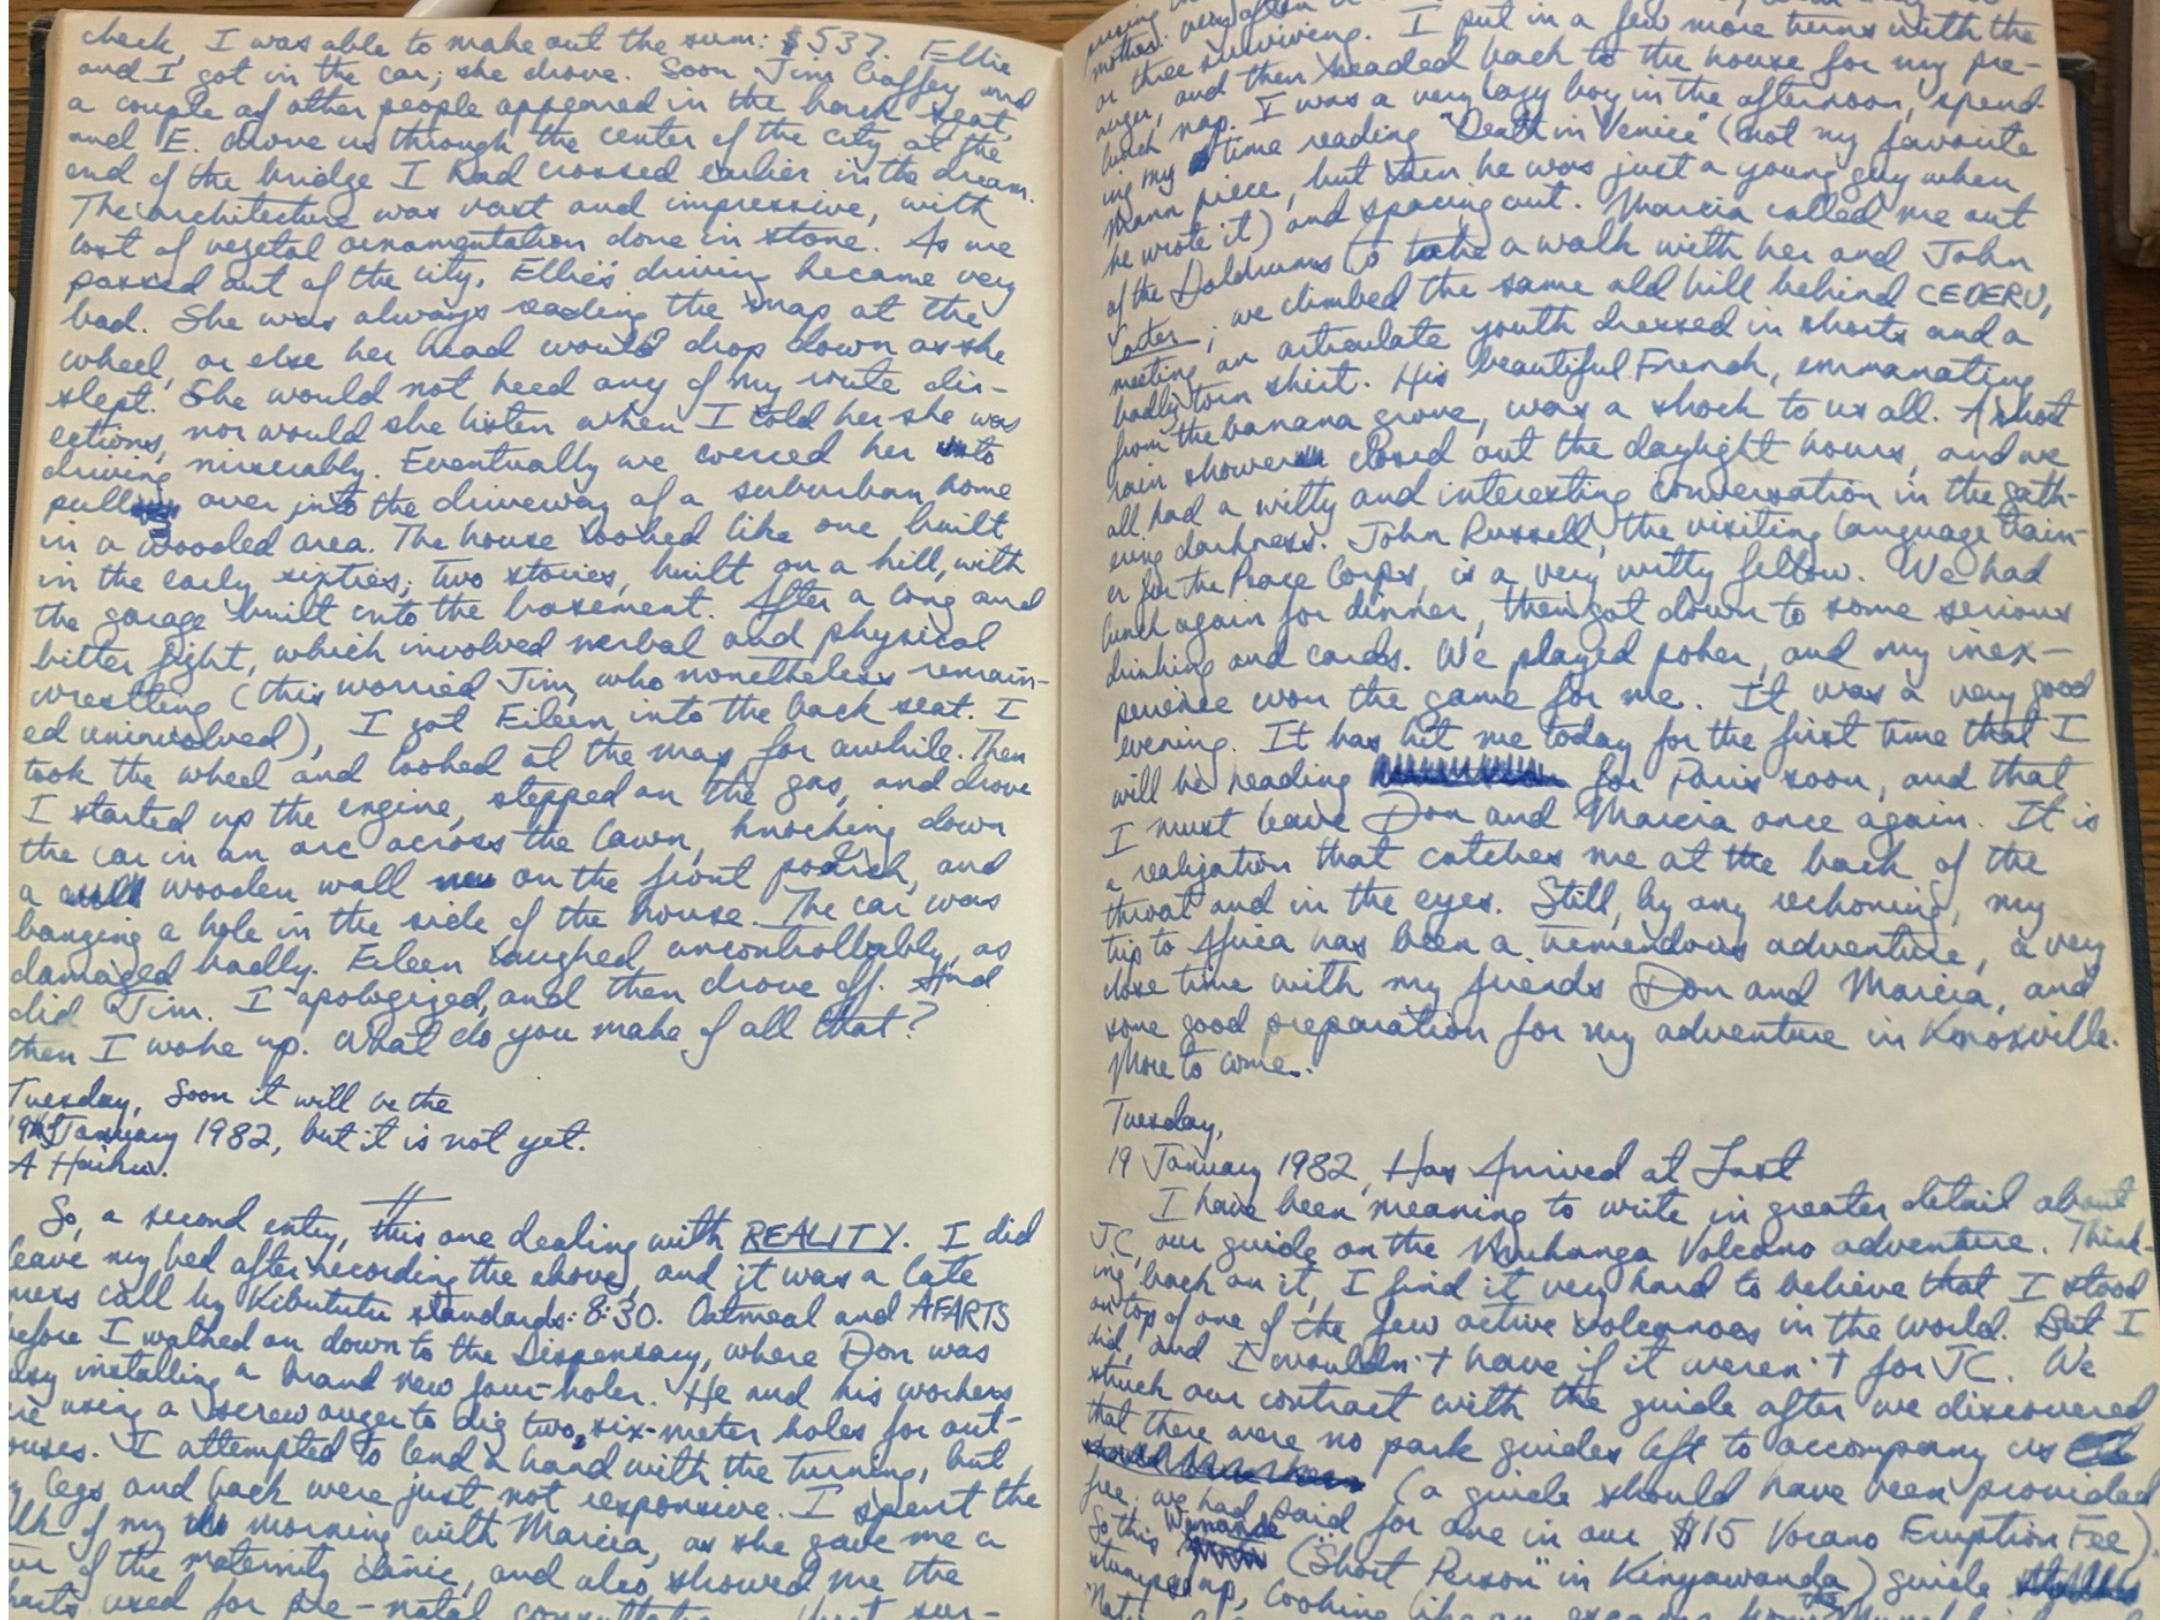 check, I was able to make out the sum: $537. Ellie
and I got in the car; she drove. Soon Jim Gaffey and
a couple of other people appeared in the back seat,
and E. drove us through the center of the city at the
end of the bridge I had crossed earlier in the dream.
The architecture was vast and impressive, with
lost of vegetal ornamentation done in stone. As we
passed out of the city, Ellie's driving became very
bad. She was always reading the map at the
wheel, or else her head would drop down as she
slept. She would not heed any of my route dir-
ections, nor would she listen when I told her she was
driving miserably. Eventually we coerced her into
pull over into the driveway of a suburban home
in a wooded area. The house looked like one built
in the early sixties; two stories, built on a hill, with
the garage built into the basement. After a long and
bitter fight, which involved verbal and physical
wrestling (this worried Jim, who nonetheless remain-
ed uninvolved), I got Eileen into the back seat. I
took the wheel and looked at the map for awhile. Then
I started up the engine, stepped on the gas, and drove
the car in an arc across the lawn, knocking down
a wooden wall on the front porch, and
banging a hole in the side of the house. The car was
damaged badly. Eileen laughed uncontrollably, as
did Jim. I apologized, and then drove off. And
then I woke up. What do you make of all that?
Tuesday, Soon it will be the
19th January 1982, but it is not yet.
A Haiku.
So, a second entry, this one dealing with REALITY. I did
leave my bed after recording the above, and it was a late
mess call by Kibututu standards: 8:30. Oatmeal and AFARTS
before I walked on down to the Dispensary, where Don was
busy installing a brand new four-holer. He and his workers
were using a screw auger to dig two, six-meter holes for out-
houses. I attempted to lend a hand with the turning, but
my legs and back were just not responsive. I spent the
bulk of my morning with Marcia, as she gave me a
tour of the maternity clinic, and also showed me the
charts used for pre-natal
mother: very often
or three surviving. I put in a few more turns with the
auger, and then headed back to the house for my pre-
lunch nap. I was a very lazy boy in the afternoon, spend-
ing my time reading "Death in Venice" (not my favorite
Mann piece, but then he was just a young guy when
he wrote it) and spacing out. Marcia called me out
of the Doldrums to take a walk with her and John
Later; we climbed the same old hill behind CEDERU,
meeting an articulate youth dressed in shorts and a
badly torn shirt. His beautiful French, emmanating
from the banana grove, was a shock to us all. A short
rain shower closed out the daylight hours, and we
all had a witty and interesting conversation in the gath-
ering darkness. John Russell, the visiting language train-
er for the Peace Corps, is a very witty fellow. We had
lunch again for dinner, then got down to some serious
drinking and cards. We played poker, and my inex-
perience won the game for me. It was a very good
evening. It has hit me today for the first time that I
will be reading for Paris soon, and that
I must leave Don and Marcia once again. It is
a realization that catches me at the back of the
throat and in the eyes. Still, by any reckoning, my
trip to Africa has been a tremendous adventure, a very
close time with my friends Don and Marcia, and
some good preparation for my adventure in Knoxville.
More to come.
Tuesday,
19 January 1982, Has Arrived at Last
I have been meaning to write in greater detail about
J.C., our guide on the Volcano adventure. Think-
ing back on it, I find it very hard to believe that I stood
on top of one of the few active volcanoes in the world. But I
did, and I wouldn't have if it weren't for JC. We
struck our contract with the guide after we discovered
that there were no park guides left to accompany us
(a guide should have been provided
free; we had paid for one in our $15 Vocano Eruption Fee).
So this (Short Person" in Kinyawanda) guide
up, looking like an